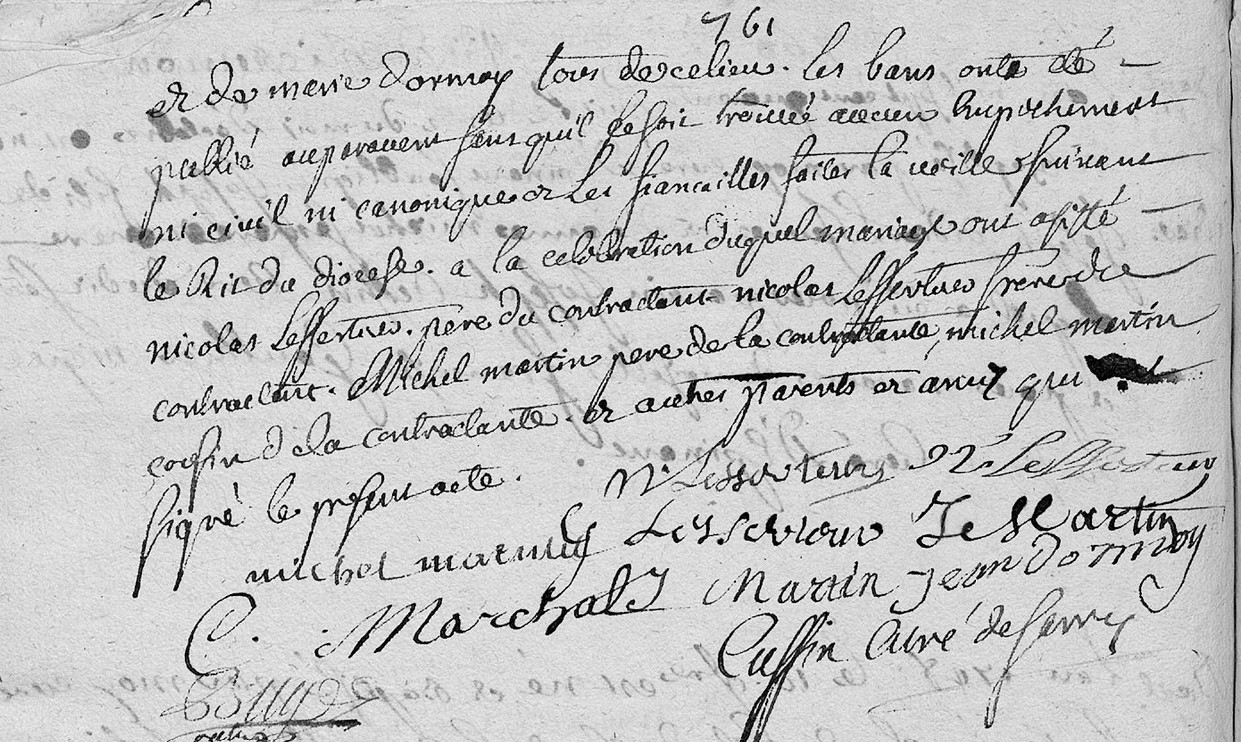 761
et de marie dormoy tous de ce lieu. les bans ont été
publié auparavent sans quil se soit trouvé aucun Empechement
ni civil ni canonique et les fiancailles faites la veille suivant
le Rit du diocese. a la celebration duquel mariage ont assisté
nicolas Lesserteur. pere du contractant. nicolas Lesserteur frere du
contractant. Michel martin pere de la contractante, michel martin
cossin d la contractante. et autres parents et amis qui ont
signé le present acte.
N Lesserteur N Lesserteur
michel martin C Lesserteur Je Martin
C. Marchal J Martin jean Dormoy
Cussin Curé de